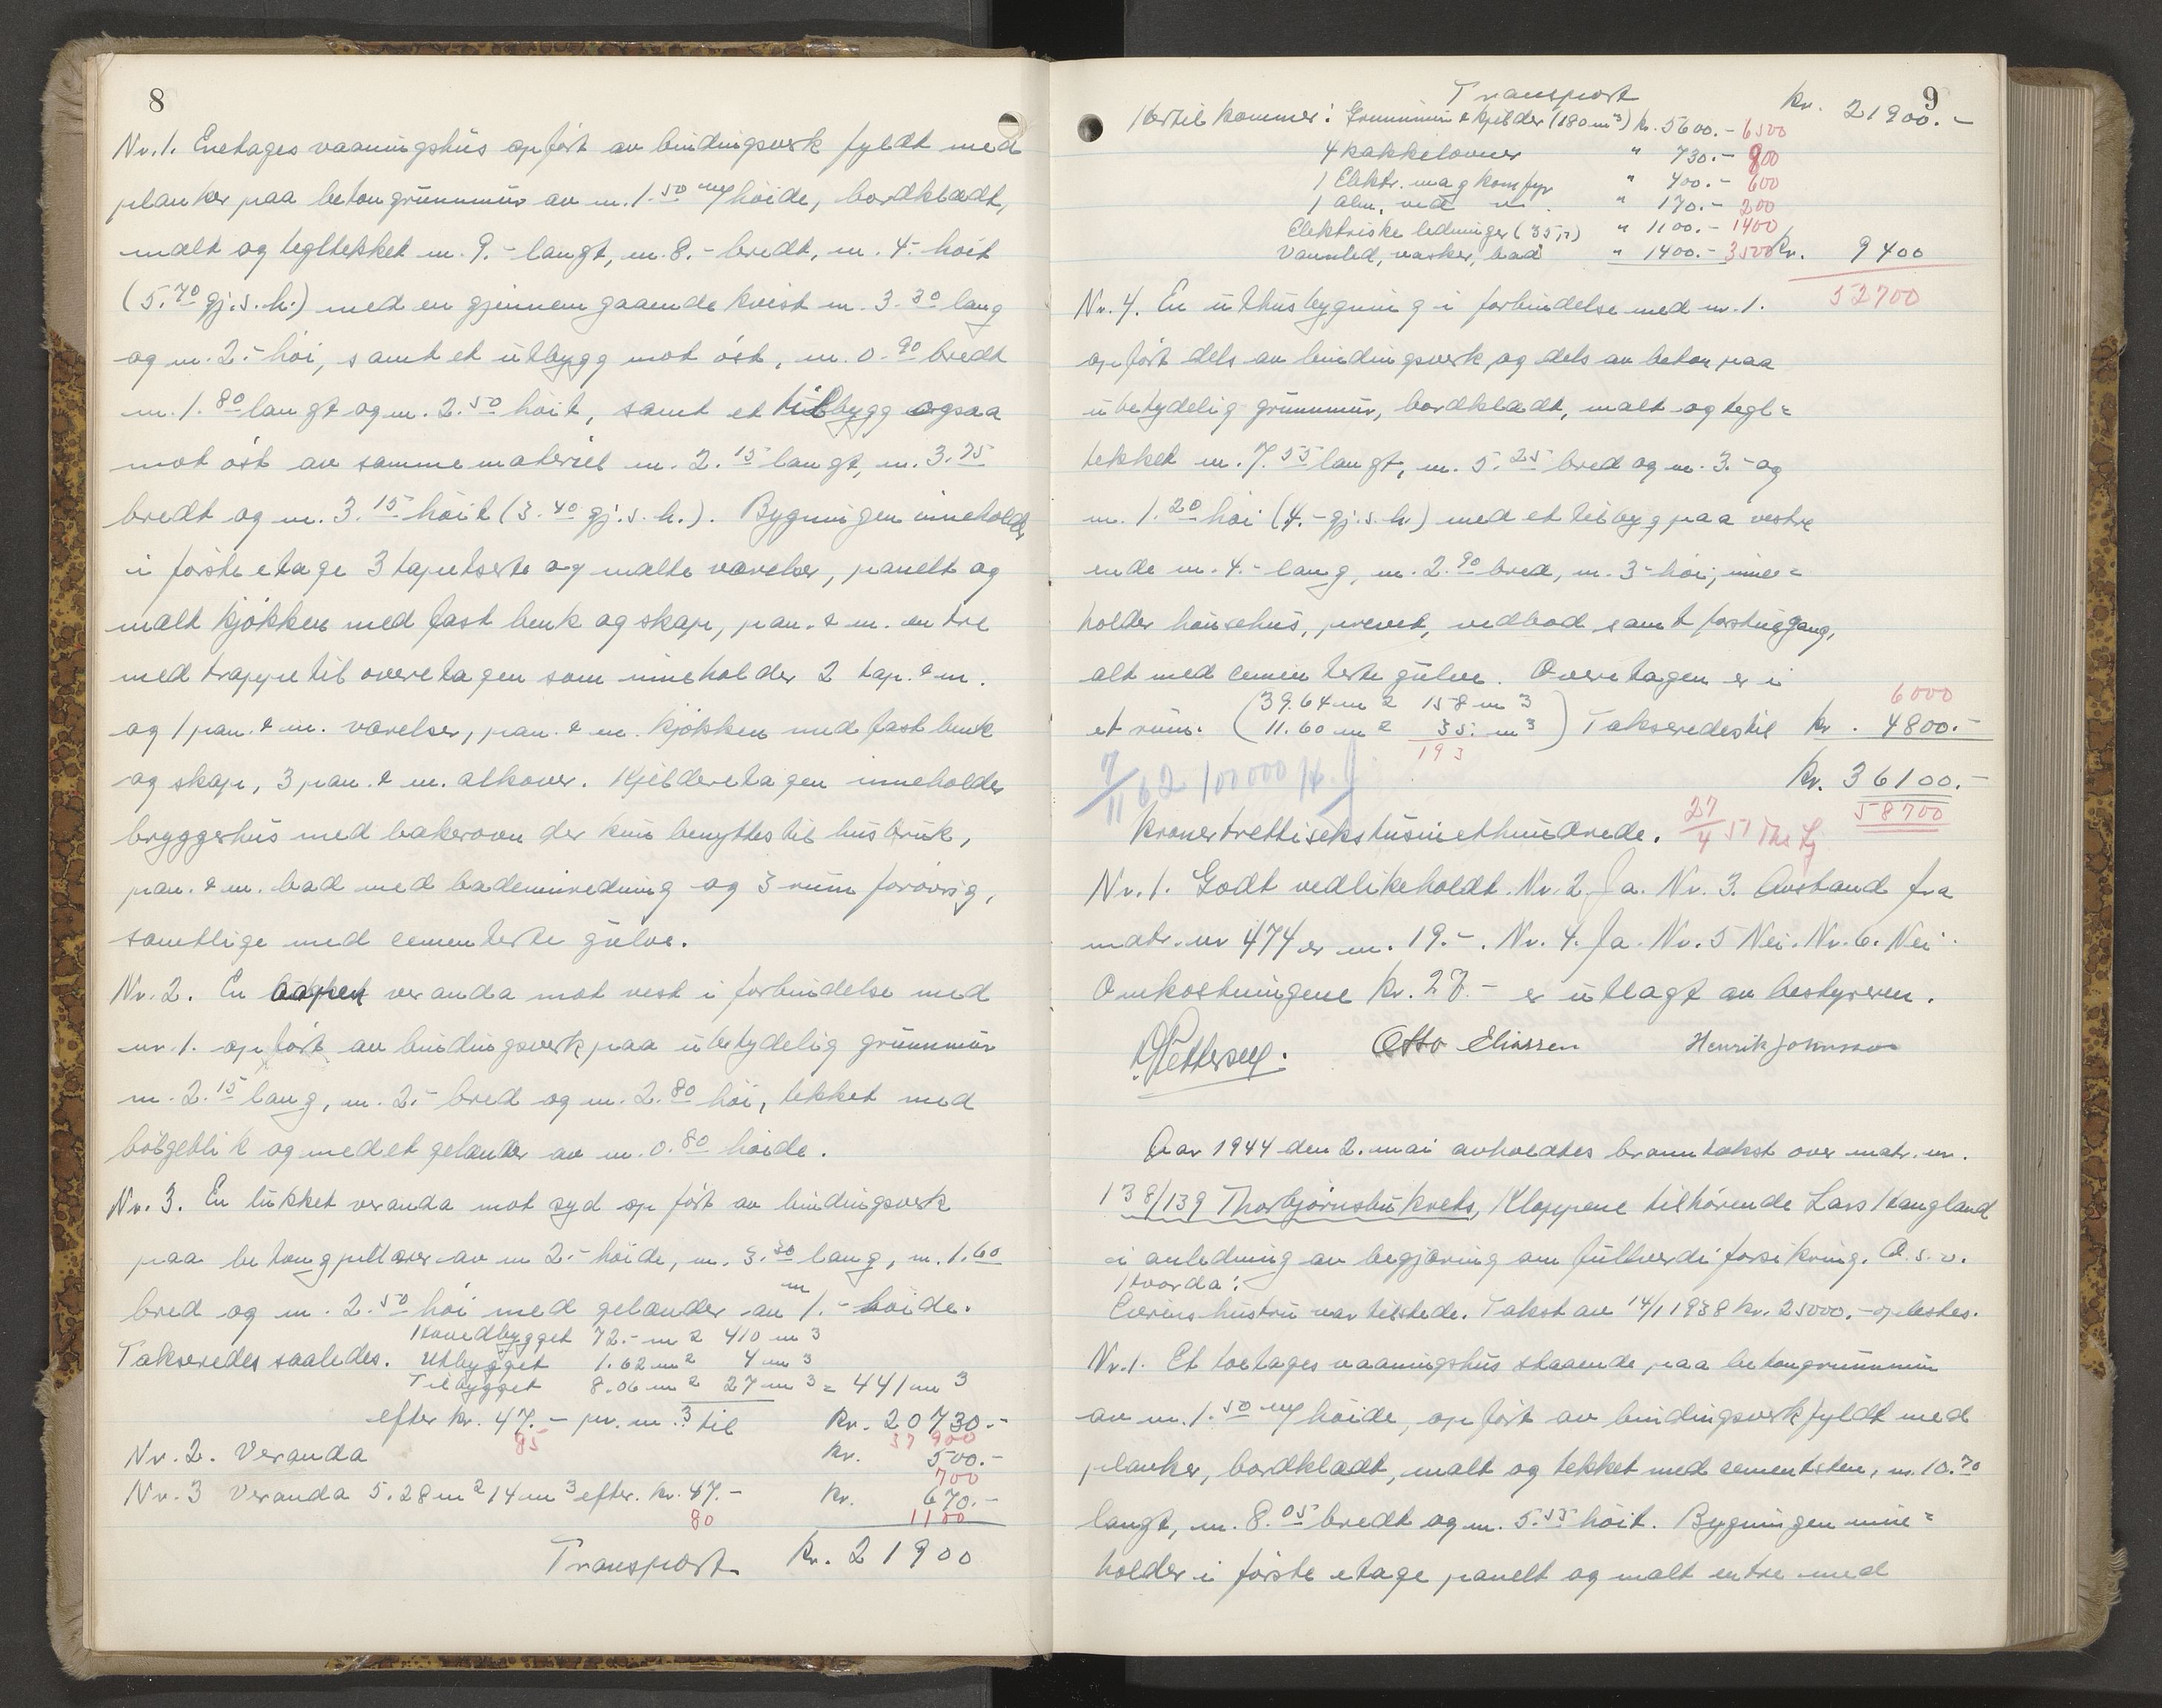 8
Nr. 1. Enetages vaaningshus opført av bindingsverk fyldt med
planker paa betongrunnmur av m. 1.50 høide, bordklædt,
malt og tegltekket m. 9.- langt, m. 8.- bredt, m. 4.- høit
(5.70 gj.s.h.) med en gjennemgaaende kvist m. 3.30 lang
og m. 2.- høi, samt et utbygg mot øst, m. 0.90 bredt
m. 1.80 langt og m. 2.50 høit, samt et tilbygg ogsaa
mot øst av samme materiel m. 2.15 langt, m. 3.75
bredt og m. 3.15 høit (3.40 gj.s.h.). Bygningen inneholder
i første etage 3 tapetserte og malte værelser, panelt og
malt kjøkken med fast benk og skap, pan. & m. entre
med trappe til overetagen som inneholder 2 tap. & m.
og 1 pan. & m. værelser, pan. & m. kjøkken med fast benk
og skap, 3 pan. & m. alkover. Kjelderetagen inneholder
bryggerhus med bakerovn der kun benyttes til husbruk,
pan. & m. bad med badeinnredning og 3 rum forøvrig,
samtlige med cementerte gulve.
Nr. 2. En aapen veranda mot vest i forbindelse med
nr. 1. opført av bindingsverk paa ubetydelig grunnmur
m. 2.15 lang, m. 2.- bred og m. 2.80 høi, tekket med
bølgeblik og med et gelænder av m. 0.80 høide.
Nr. 3. En lukket veranda mot syd opført av bindingsverk
paa betongpillarer av m 2.- høide, m. 3.30 lang, m. 1.60
bred og m. 2.50 høi med gelænder av m 1.- høide.
Hovedbygget 72.- m2 410 m3
Takseredes saaledes. Utbygget 1.62 m2 4 m3
Tilbygget 8.06 m2 27 m3 = 441 m3
efter kr. 47.- pr. m.3 til Kr. 20730.-
85 37900
Nr. 2. Veranda Kr. 500.-
700
Nr. 3 Veranda 5.28 m2 14 m3 efter. kr. 47.- Kr. 670.-
80 1100
Transport Kr. 21900
9
Transport Kr. 21900.-
Hertil kommer: Grunnmur & kjelder (180 m3) kr. 5600.- 6500
4 kakkelovner " 730.- 900
1 Elektr. mag komfyr " 400.- 600
1 alm. ved " 170.- 200
Elektriske ledninger (35 p) " 1100.- 1400
Vannled, vasker, bad " 1400.- 3500 Kr. 9400
52700
Nr. 4. En uthusbygning i forbindelse med nr. 1.
opført dels av bindingsverk og dels av beton paa
ubetydelig grunnmur, bordklædt, malt og tegl=
tekket m. 7.55 langt, m. 5.25 bred og m. 3.- og
m. 1.20 høi (4.- gj.s.h.) med et tilbygg paa vestre
ende m. 4.- lang, m. 2.90 bred, m. 3- høi, inne=
holder hønsehus, prevet, vedbod samt forstuggang,
alt med cementerte gulve. Overetagen er i
6000
et rum. (39.64 m2 158 m3
11.60 m2 35. m3) Takseredes til kr. 4800.-
193
Kr. 36100.-
7/11 62 100000
58700
Kroner trettisekstusinethundrede. 27/4 51
Nr. 1. Godt vedlikeholdt. Nr. 2. Ja. Nr. 3. Avstand fra
matr. nr 474 er m. 19.-. Nr. 4. Ja. Nr. 5 Nei. Nr. 6. Nei.
Omkostningene kr. 27.- er utlagt av bestyreren.
Pettersen. Otto Eliassen Henrik Johnsson
Aar 1944 den 2. mai avholdtes branntakst over matr. nr.
138/139 Thorbjørnsbu krets, Kloppene tilhørende Lars Haugland
i anledning av begjæring om fullverdi forsikring. A.s.v.
Hvorda:
Eierens hustru var tilstede. Takst av 14/1 1938 kr. 25000.- oplestes.
Nr. 1. Et toetages vaaningshus staaende paa betongrunnmur
av m. 1.50 høide, opført av bindingsverk fyldt med
planker, bordklædt, malt og tekket med cementsten, m. 10.70
langt, m. 8.05 bredt og m. 5.55 høit. Bygningen inne=
holder i første etage panelt og malt entre med